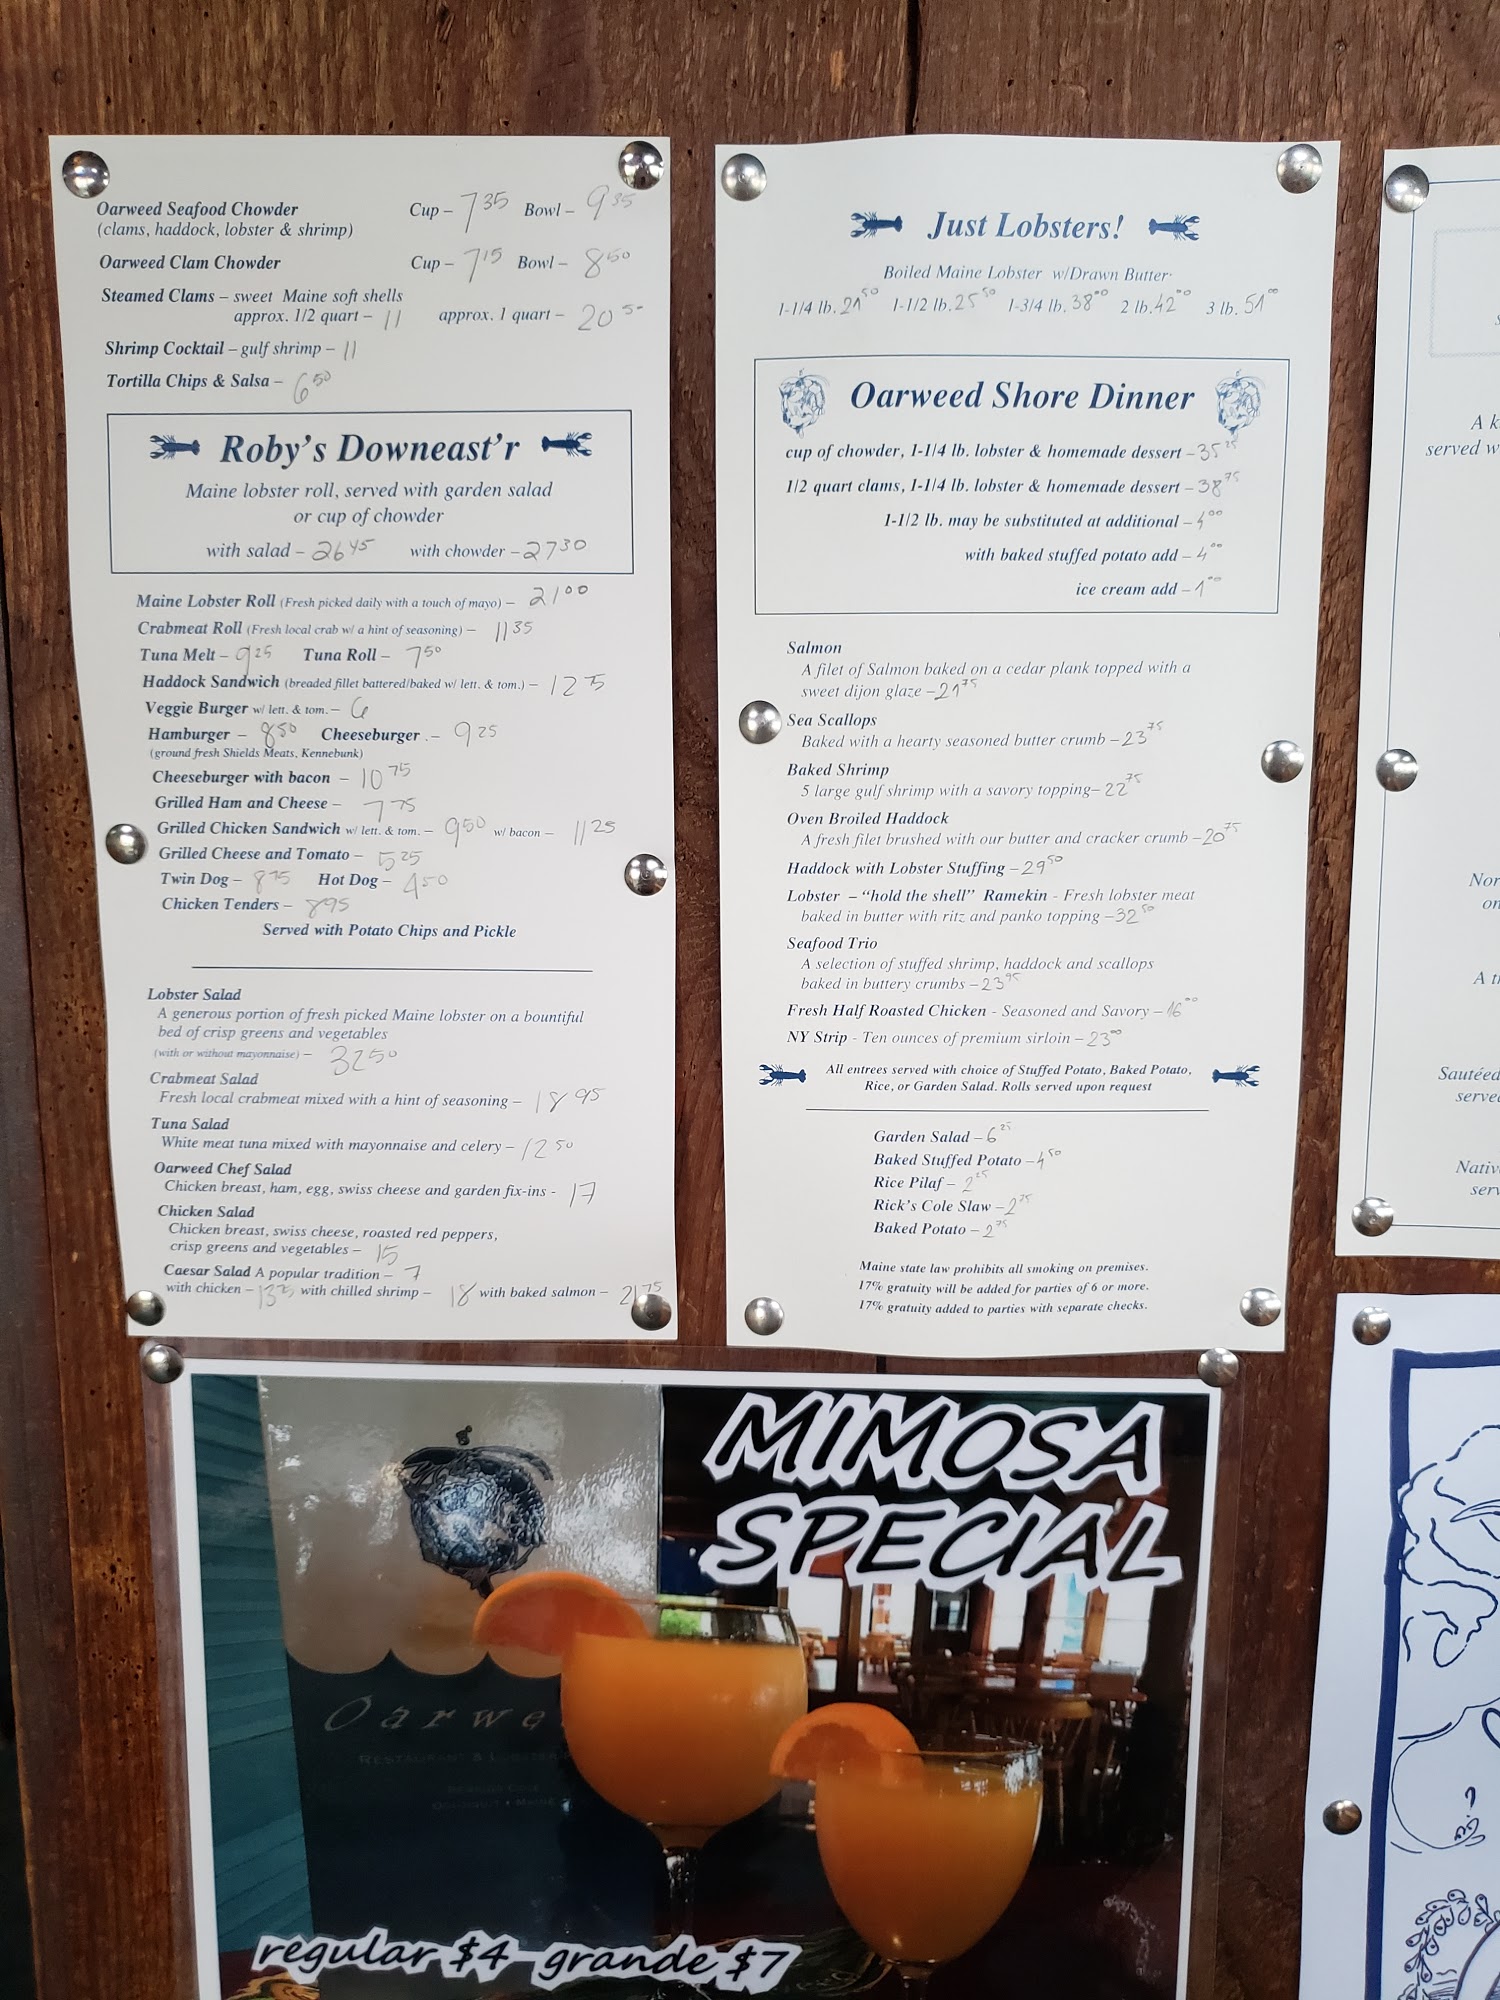 Oarweed Seafood Chowder Cup – 7 35 Bowl – 9 35
(clams, haddock, lobster & shrimp)
Oarweed Clam Chowder Cup – 7 15 Bowl – 8 50
Steamed Clams – sweet Maine soft shells
approx. 1/2 quart – 11 approx. 1 quart – 20 5-
Shrimp Cocktail – gulf shrimp – 11
Tortilla Chips & Salsa – 6 50
Roby's Downeast'r
Maine lobster roll, served with garden salad
or cup of chowder
with salad – 26 45 with chowder – 27 30
Maine Lobster Roll (Fresh picked daily with a touch of mayo) – 21 00
Crabmeat Roll (Fresh local crab w/ a hint of seasoning) – 11 35
Tuna Melt – 9 25 Tuna Roll – 7 50
Haddock Sandwich (breaded fillet battered/baked w/ lett. & tom.) – 12 75
Veggie Burger w/ lett. & tom. – 6
Hamburger – 8 50 Cheeseburger . – 9 25
(ground fresh Shields Meats, Kennebunk)
Cheeseburger with bacon – 10 75
Grilled Ham and Cheese – 7 75
Grilled Chicken Sandwich w/ lett. & tom. – 9 50 w/ bacon – 11 25
Grilled Cheese and Tomato – 5 25
Twin Dog – 8 75 Hot Dog – 4 50
Chicken Tenders – 8 95
Served with Potato Chips and Pickle
Lobster Salad
A generous portion of fresh picked Maine lobster on a bountiful
bed of crisp greens and vegetables
(with or without mayonnaise) – 32 50
Crabmeat Salad
Fresh local crabmeat mixed with a hint of seasoning – 18 95
Tuna Salad
White meat tuna mixed with mayonnaise and celery – 12 50
Oarweed Chef Salad
Chicken breast, ham, egg, swiss cheese and garden fix-ins - 17
Chicken Salad
Chicken breast, swiss cheese, roasted red peppers,
crisp greens and vegetables – 15
Caesar Salad A popular tradition – 7
with chicken – with chilled shrimp – 18 with baked salmon – 21 75
Just Lobsters!
Boiled Maine Lobster w/Drawn Butter
1-1/4 lb. 21 50 1-1/2 lb. 25 50 1-3/4 lb. 38 00 2 lb. 42 00 3 lb. 51 00
Oarweed Shore Dinner
cup of chowder, 1-1/4 lb. lobster & homemade dessert – 35 25
1/2 quart clams, 1-1/4 lb. lobster & homemade dessert – 38 75
1-1/2 lb. may be substituted at additional – 4 00
with baked stuffed potato add – 4 00
ice cream add – 1 00
Salmon
A filet of Salmon baked on a cedar plank topped with a
sweet dijon glaze – 21 75
Sea Scallops
Baked with a hearty seasoned butter crumb – 23 75
Baked Shrimp
5 large gulf shrimp with a savory topping– 22 75
Oven Broiled Haddock
A fresh filet brushed with our butter and cracker crumb – 20 75
Haddock with Lobster Stuffing – 29 50
Lobster – "hold the shell" Ramekin - Fresh lobster meat
baked in butter with ritz and panko topping – 32 50
Seafood Trio
A selection of stuffed shrimp, haddock and scallops
baked in buttery crumbs – 23 95
Fresh Half Roasted Chicken - Seasoned and Savory – 16 00
NY Strip - Ten ounces of premium sirloin – 23 00
All entrees served with choice of Stuffed Potato, Baked Potato,
Rice, or Garden Salad. Rolls served upon request
Garden Salad – 6 25
Baked Stuffed Potato – 4 50
Rice Pilaf – 2 25
Rick's Cole Slaw – 2 75
Baked Potato – 2 75
Maine state law prohibits all smoking on premises.
17% gratuity will be added for parties of 6 or more.
17% gratuity added to parties with separate checks.
A k
served w
Nor
on
A t
Sautéed
serve
Nativ
serv
MIMOSA
SPECIAL
Oarwe
RESTAURANT & LOBSTER
regular $4 grande $7